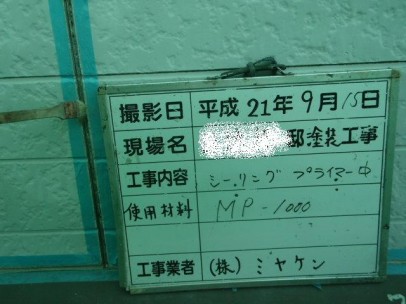 撮影日 平成 21年 9月 15日
現場名 邸塗装工事
工事内容 シーリング プライマー中
使用材料 MP-1000
工事業者 (株) ミヤケン